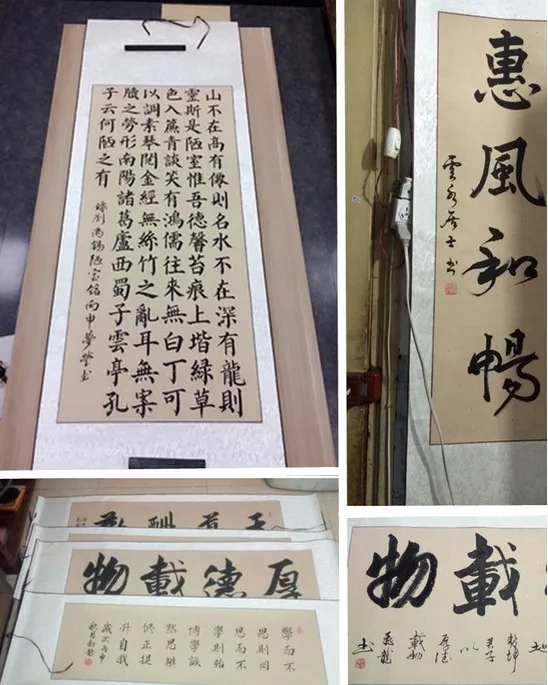 山不在高有僊則名水不在深有龍則
靈斯是陋室惟吾德馨苔痕上堦綠草
色入簾青談笑有鴻儒往來無白丁可
以調素琴閱金經無絲竹之亂耳無案
牘之勞形南陽諸葛廬西蜀子雲亭孔
子云何陋之有
錄劉禹錫陋室銘丙申
惠風和暢
雲水居士書
天道酬勤
厚德載物
學而不
思則罔
思而不
學則殆
博學
升自我
歲次丙申
載物
地
君子
以
厚德
載物
書